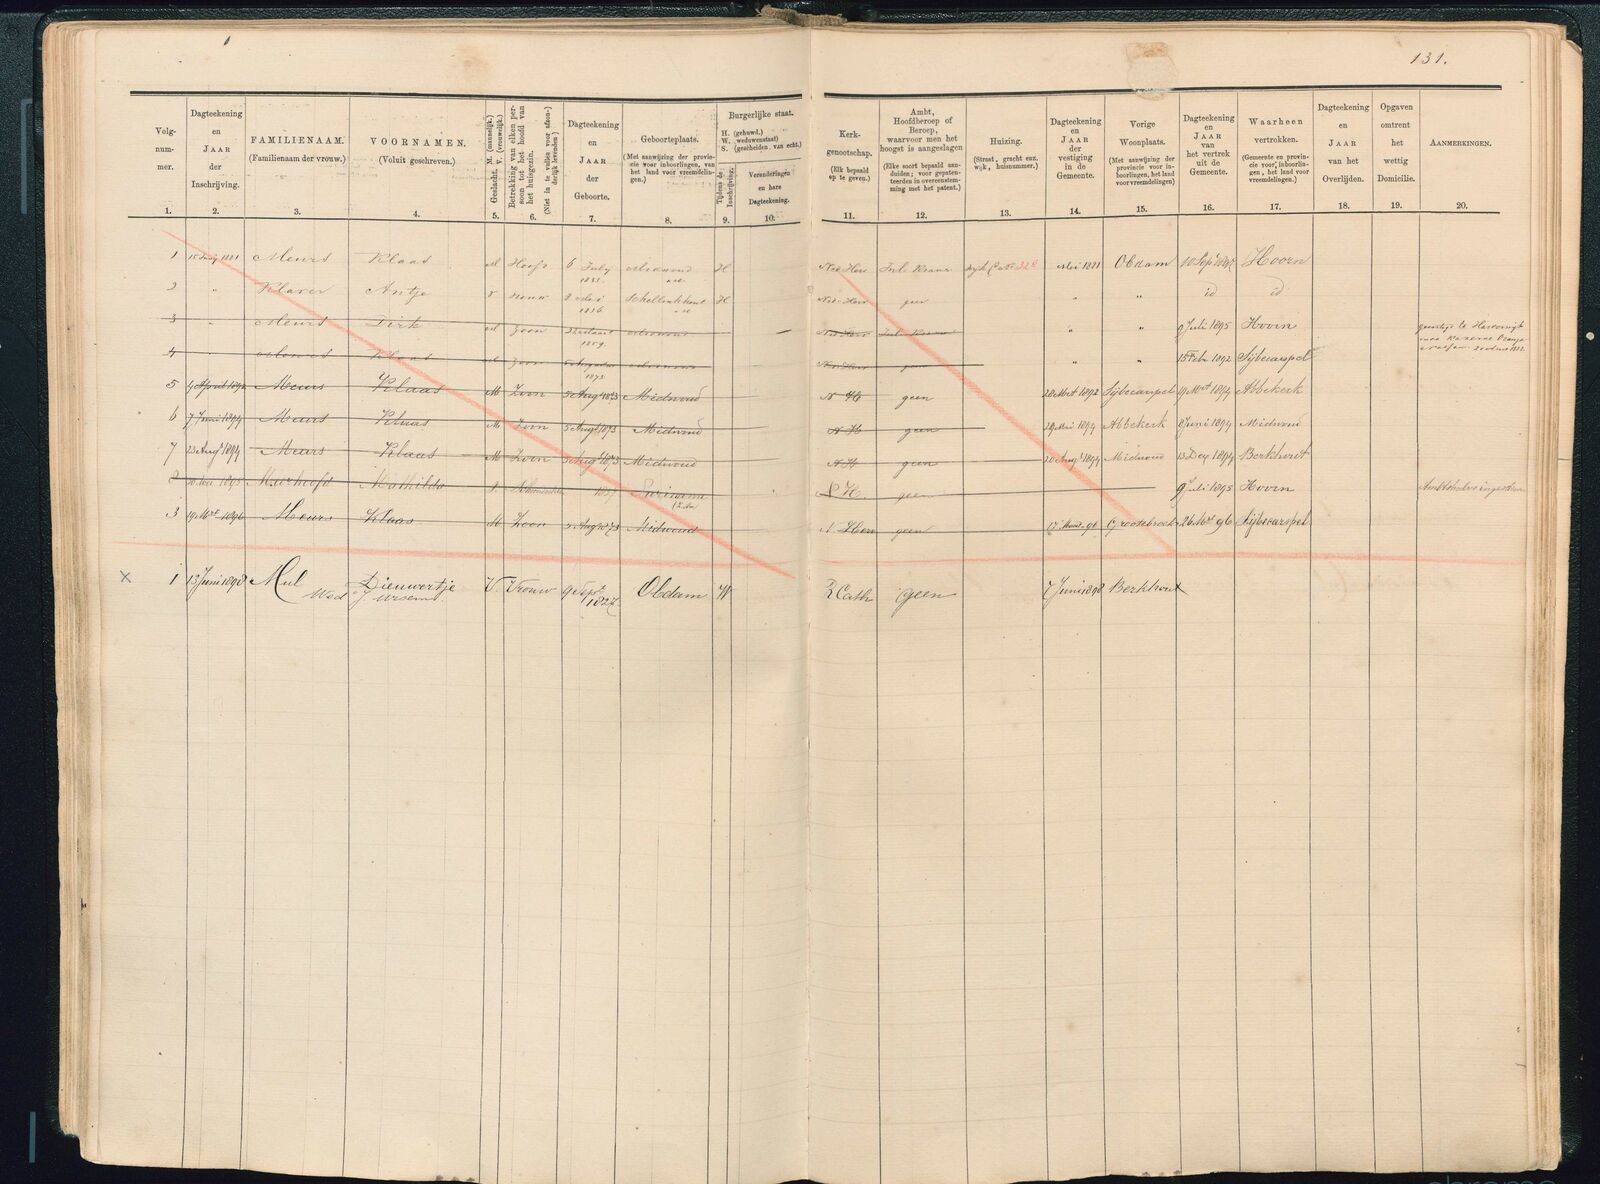 131.
Volg-
num-
mer.
1.
Dagteekening
en
JAAR
der
Inschrijving.
2.
FAMILIENAAM.
(Familienaam der vrouw.)
3.
VOORNAMEN.
(Voluit geschreven.)
4.
Geslacht. M. (mannelijk.)
V. (vrouwelijk.)
5.
Betrekking van elken per-
soon tot het hoofd van
het huisgezin.
(Niet in te vullen voor afzon-
derlijk levenden.)
6.
Dagteekening
en
JAAR
der
Geboorte.
7.
Geboorteplaats.
(Met aanwijzing der provin-
cie voor inboorlingen, van
het land voor vreemdelin-
gen.)
8.
Burgerlijke staat.
H. (gehuwd.)
W. (weduwenstaat)
S. (gescheiden van echt.)
Tijdens de
Inschrijving.
9.
Veranderingen
en hare
Dagteekening.
10.
Kerk-
genootschap.
(Elk bepaald
op te geven.)
11.
Ambt,
Hoofdberoep of
Beroep,
waarvoor men het
hoogst is aangeslagen
(Elke soort bepaald aan-
duiden; voor gepaten-
teerden in overeenstem-
ming met het patent.)
12.
Huizing.
(Straat, gracht enz.
wijk, huisnummer.)
13.
Dagteekening
en
JAAR
der
vestiging
in de
Gemeente.
14.
Vorige
Woonplaats.
(Met aanwijzing der
provincie voor in-
boorlingen, het land
voor vreemdelingen)
15.
Dagteekening
en
JAAR
van
het vertrek
uit de
Gemeente.
16.
Waarheen
vertrokken.
(Gemeente en provin-
cie voor inboorlin-
gen, het land voor
vreemdelingen.)
17.
Dagteekening
en
JAAR
van het
Overlijden.
18.
Opgaven
omtrent
het
wettig
Domicilie.
19.
AANMERKINGEN.
20.
1 Meurs Klaas M Hoofd 6 July H Ned Herv Mei 1881 Obdam Hoorn
2 " Klaver Antje V vrouw Schellinkhout H Ned Herv geen " " id id
3 " Meurs Dirk M Zoon " " 9 Juli 1895 Hoorn
4 " Meurs Klaas M Zoon geen " " 15 Febr 1892 Sijbecarspel
5 4 April 1892 Meurs Klaas M Zoon 5 Augs 1873 Midwoud N H geen 28 Mrt 1892 Sijbecarspel 19 Mrt 1894 Abbekerk
6 7 Juni 1894 Meurs Klaas M Zoon 5 Augs 1873 Midwoud N H geen 29 Mei 1894 Abbekerk 8 Juni 1894 Midwoud
7 23 Augs 1894 Meurs Klaas M Zoon 5 Augs 1873 Midwoud N H geen 20 Augs 1894 Midwoud 13 Dec 1894 Berkhout
2 Mathilda V. 1857 Suriname N H. geen 9 Juli 1895 Hoorn
3 19 Mrt 1896 Meurs Klaas M Zoon 5 Aug 1873 Midwoud N Herv geen Grootebroek 26 Mrt 96 Sijbecarspel
× 1 13 Juni 1898 Mul Dieuwertje V. Vrouw 9 Sept Obdam W R Cath geen 7 Juni 1898 Berkhout
Wed J. Ursem. 1827